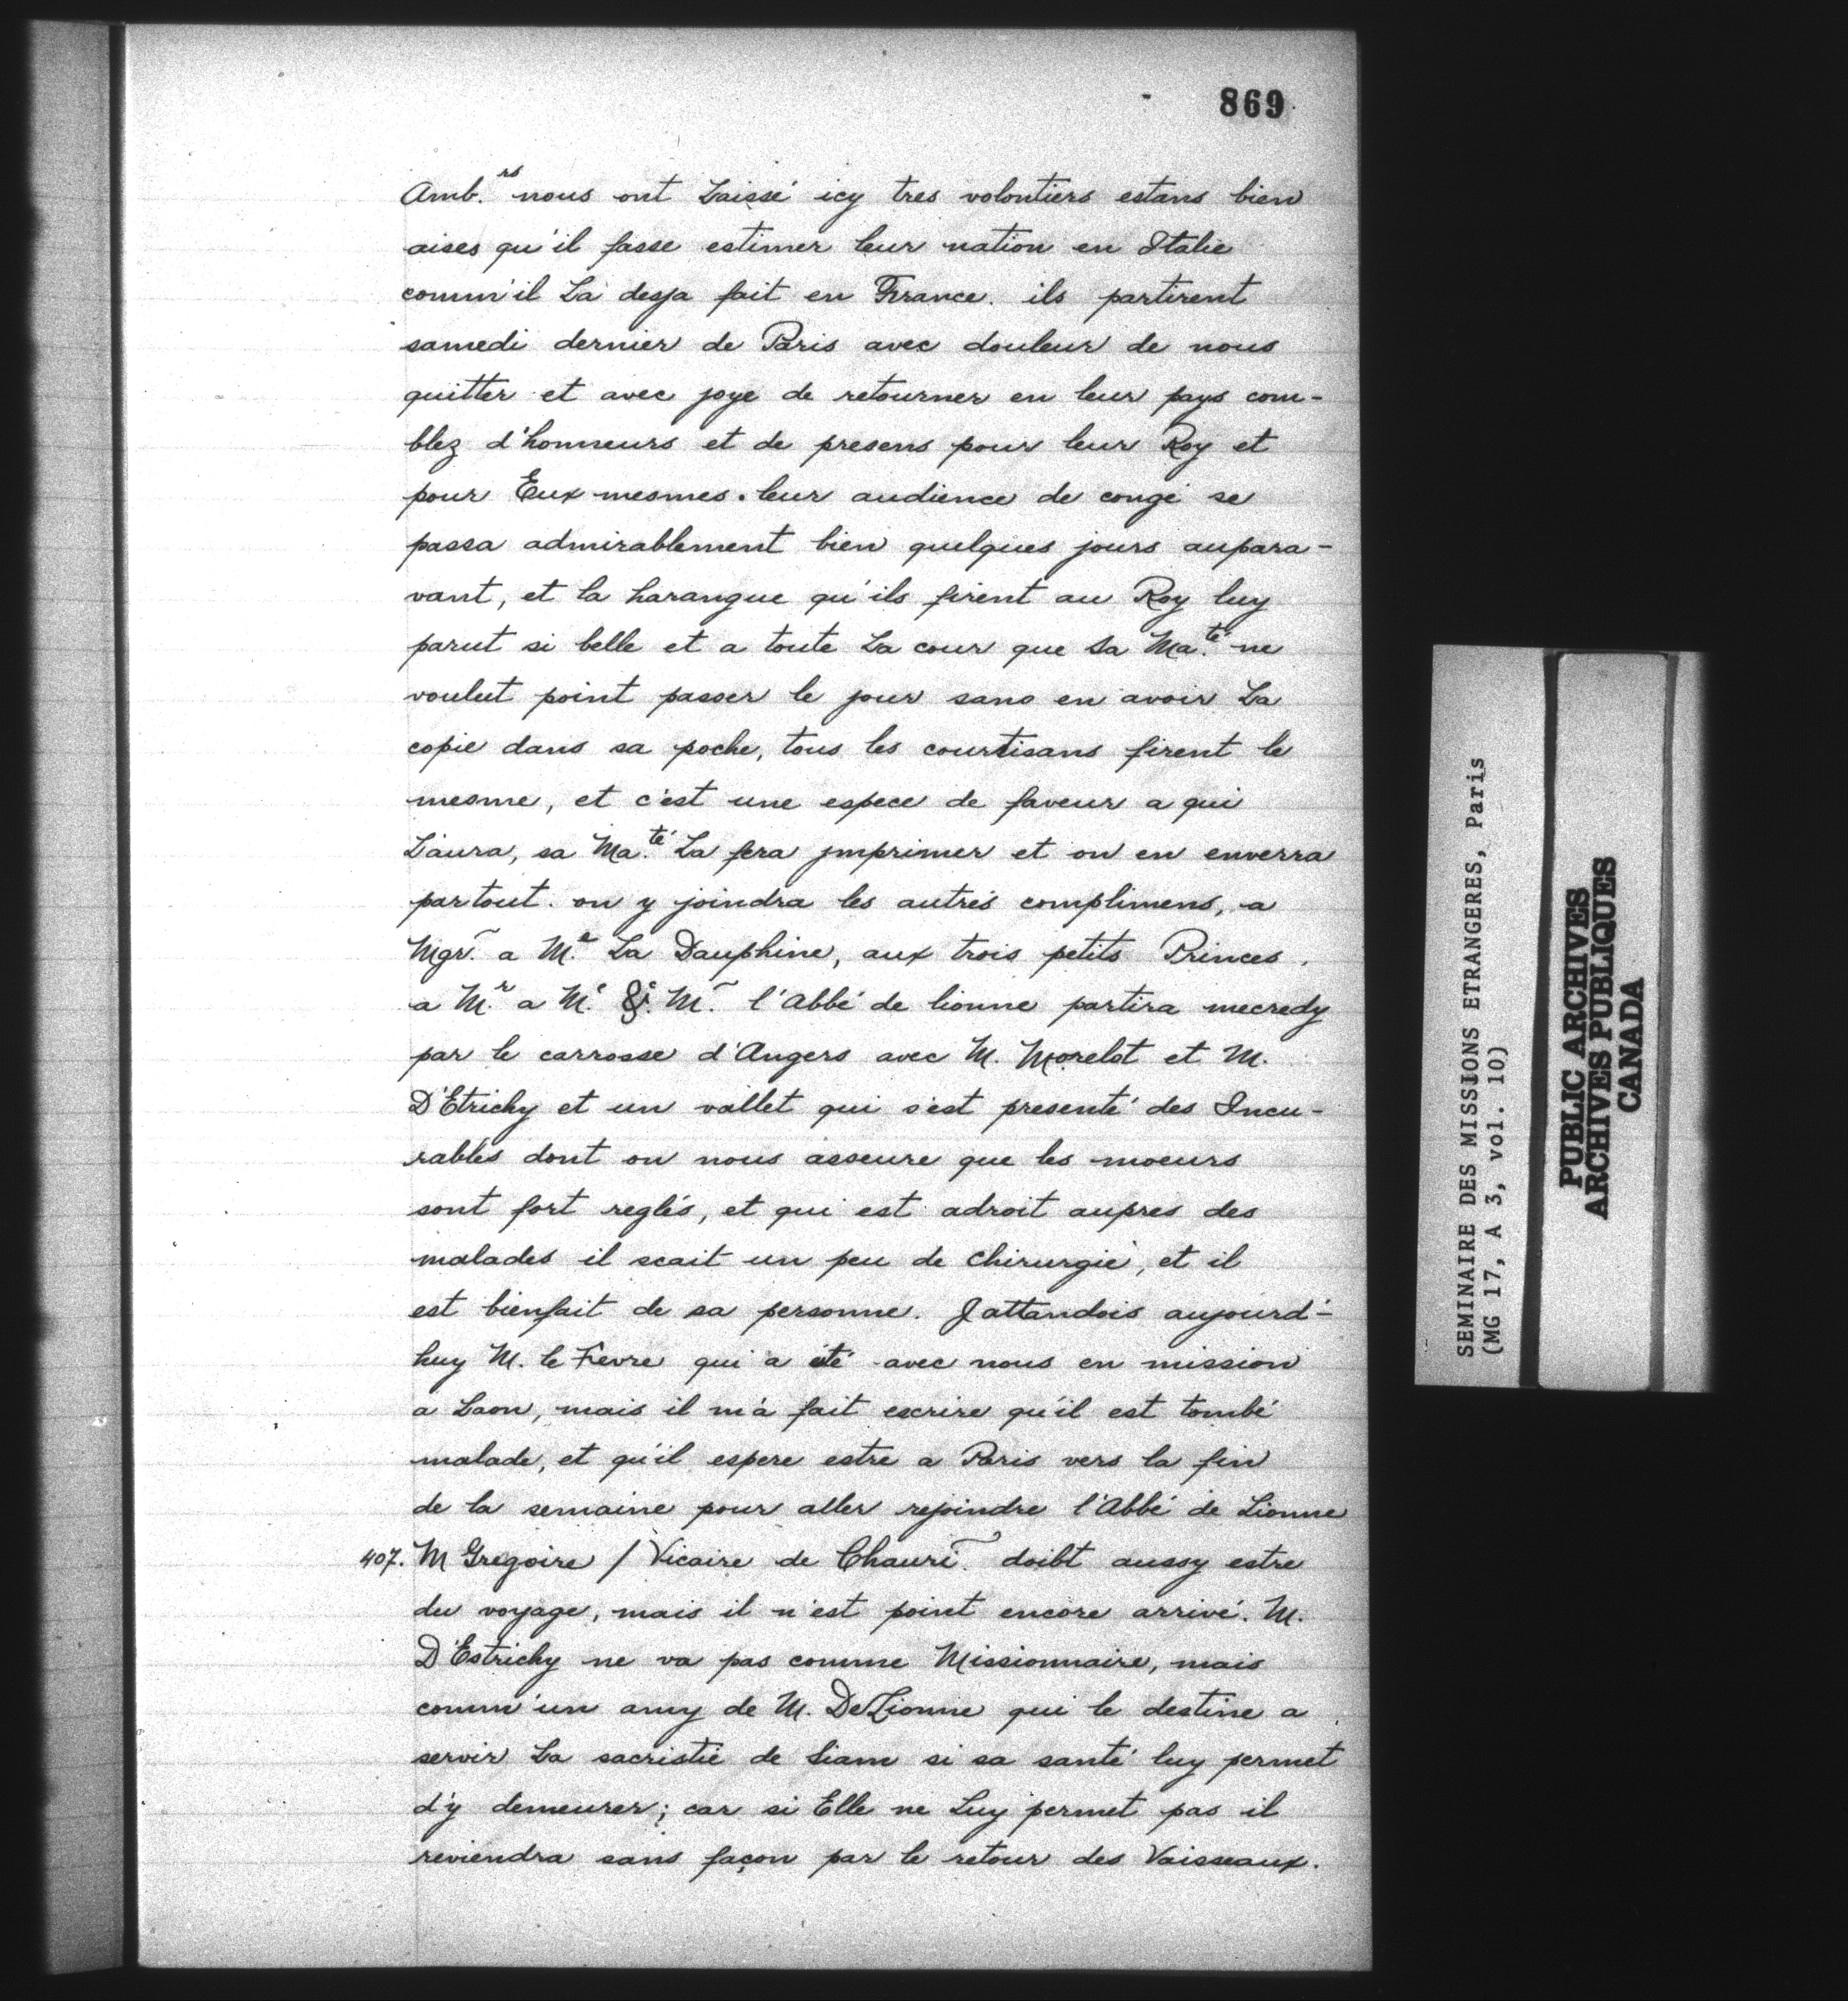 869
Amb.rs nous ont Laissé icy tres volontiers estans bien
aises qu'il fasse estimer leur nation en Italie
comm'il La desja fait en France. ils partirent
samedi dernier de Paris avec douleur de nous
quitter et avec joye de retourner en leur pays com-
blez d'honneurs et de presens pour leur Roy et
pour Eux mesmes. leur audience de congé se
passa admirablement bien quelques jours aupara-
vant, et la harangue qu'ils firent au Roy luy
parut si belle et a toute La cour que sa Ma.té ne
voulut point passer le jour sans en avoir La
copie dans sa poche, tous les courtisans firent le
mesme, et c'est une espece de faveur a qui
L'aura, sa Ma.té La fera jmprimer et on en enverra
partout. on y joindra les autres complimens, a
Mgr. a M.e La Dauphine, aux trois petits Princes.
a M.r a M.e &c. M. l'Abbé de lionne partira mecredy
par le carrosse d'Angers avec M. Morelot et M.
D'Etrichy et un vallet qui s'est presenté des Incu-
rables dont on nous asseure que les moeurs
sont fort reglés, et qui est adroit aupres des
malades il scait un peu de chirurgie, et il
est bienfait de sa personne. J'attandois aujourd'-
huy M. le Fevre qui a été avec nous en mission
a Laon, mais il m'a fait escrire qu'il est tombé
malade, et qu'il espere estre a Paris vers la fin
de la semaine pour aller rejoindre l'Abbé de Lionne
407. M Gregoire / Vicaire de Chauri. doibt aussy estre
du voyage, mais il n'est point encore arrivé. M.
D'Estrichy ne va pas comme Missionnaire, mais
comm'un amy de M. De Lionne qui le destine a
servir La sacristie de Siam si sa santé luy permet
d'y demeurer; car si Elle ne Luy permet pas il
reviendra sans façon par le retour des Vaisseaux.
SEMINAIRE DES MISSIONS ETRANGERES, Paris
(MG 17, A 3, vol. 10)
PUBLIC ARCHIVES
ARCHIVES PUBLIQUES
CANADA